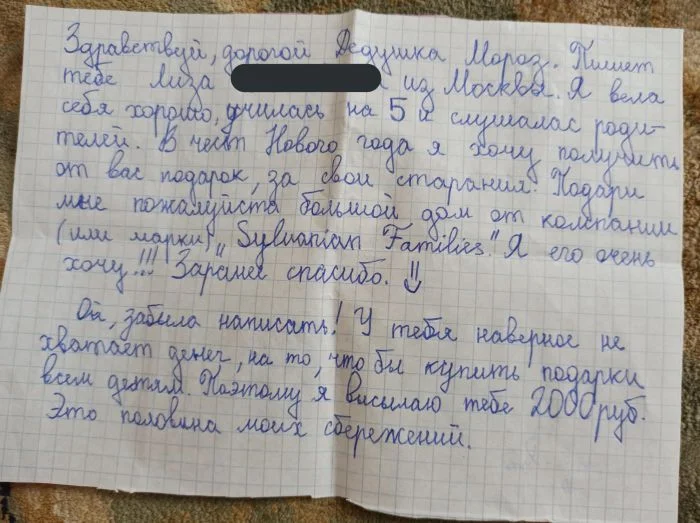 Здравствуй, дорогой Дедушка Мороз. Пишет
тебе Лиза а из Москвы. Я вела
себя хорошо, училась на 5 и слушалас роди-
телей. В чест Нового года я хочу получить
от вас подарок, за свои старания. Подари
мне пожалуйста большой дом от компании
(или марки) „Sylvanian Families." Я его очень
хочу!!! Заранее спасибо. ⇓
Ой, забыла написать! У тебя наверное не
хватает денег, на то, что бы купить подарки
всем детям. Поэтому я высылаю тебе 2000 руб.
Это половина моих сбережений.